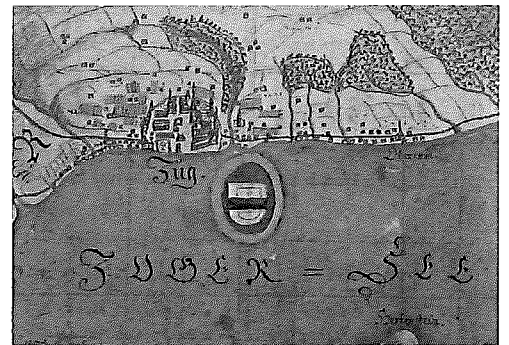 R
Zug.
ZUGER = SEE